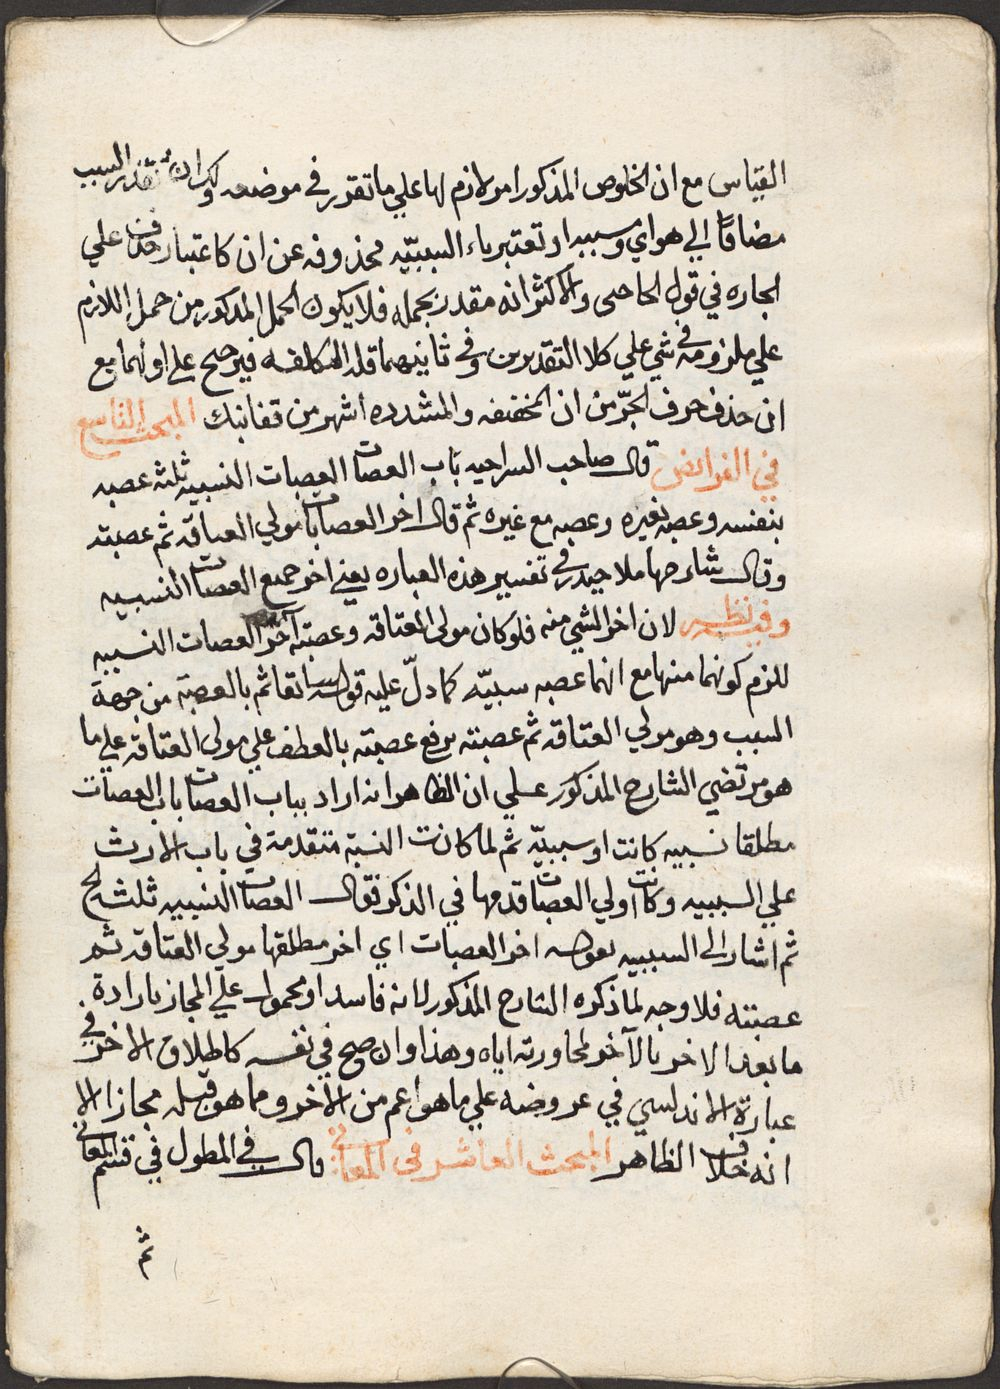 القياس مع ان الخلوص المذكور امر لازم لها علي ما تقرر في موضعه ولك ان تقدر السبب
مضافا الي هو اي وسببه او تعتبر باء السببيّه محذوفه عن ان كاعتبار حذف علي
الجاره في قول الحاحبى والاكثر انه مقدر بجمله فلا يكون الحمل المذكور من حمل اللازم
علي ملزومه في شي علي كلا التقديرين وفي ثانيهما قلة التكلفه فيرجح علي اولهما مع
ان حذف حرف الجرّ من ان المخففه والمشدده اشهر من قفا نبك المبحث التاسع
في الفرائض قال صاحب السراجيه باب العصبات العصبات النسبيه ثلثه عصبه
بنفسه وعصبه بغيره وعصبه مع غيره ثم قال اخر العصبات مولي العتاقه ثم عصبته
وقال شارحها ملا حيدر في تفسير هذه العباره يعني اخر جميع العصبات النسبيه
وفيه نظر لان اخر الشي منه فلو كان مولى العتاقه وعصبته آخر العصبات النسبيه
للزم كونهما منها مع انهما عصبه سببيّه كما دلّ عليه قوله سابقا ثم بالعصبة من جهة
السبب وهو مولي العتاقه ثم عصبته برفع عصبته بالعطف علي مولى العتاقه علي ما
هو مرتضي الشارح المذكور علي ان الظاهر انه اراد بباب العصبات باب العصبات
مطلقا نسبيه كانت او سببيّه ثم لما كانت النسبة متقدمة في باب الارث
علي السببيه وكانت اولي العصبات قدمها في الذكر فقال العصبات النسبيه ثلثه الخ
ثم اشار الى السببيه بقوله اخر العصبات اي اخر مطلقها مولي العتاقه ثم
عصبته فلا وجه لما ذكره الشارح المذكور لانه فاسد او محمول علي المجاز بارادة
ما بعد الاخر بالآخر لمجاورته اياه وهذا وان صح في نفسه كاطلاق الاخر في
عبارة الاندلسي في عروضه علي ما هو اعم من الأخر وما هو قبله مجازا الا
انه خلاف الظاهر المبحث العاشر في المعاني قال في المطول في قسم المعاني
ثم